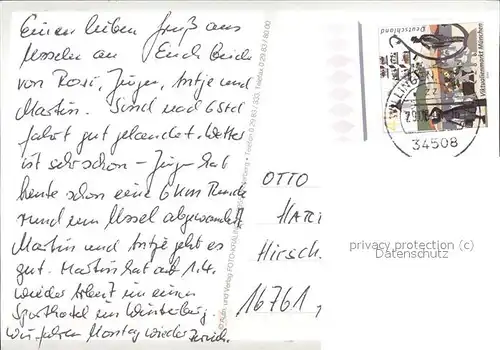 Einen lieben Gruß aus
Usseln an Euch Beide
von Rosi, Jürgen, Antje und
Martin. Sind nach 6 Std
Fahrt gut gelandet. Wetter
ist sehr schön – Jürgen hat
heute schon eine 6 km Runde
rund um Ussel abgewandert
Martin und Antje geht es
gut. Martin hat ab 1.4.
wieder Arbeit in einem
Sporthotel in Winterberg.
Wir fahren Montag wieder zurück.
© Foto- und Verlag FOTO-KRÄLING Winterberg • Telefon 0 29 83 / 533, Telefax 0 29 83 / 80 00
Deutschland
Viktualienmarkt München
WILLINGEN
34508
OTTO
HART
Hirsch.
16761
privacy protection (c)
Datenschutz